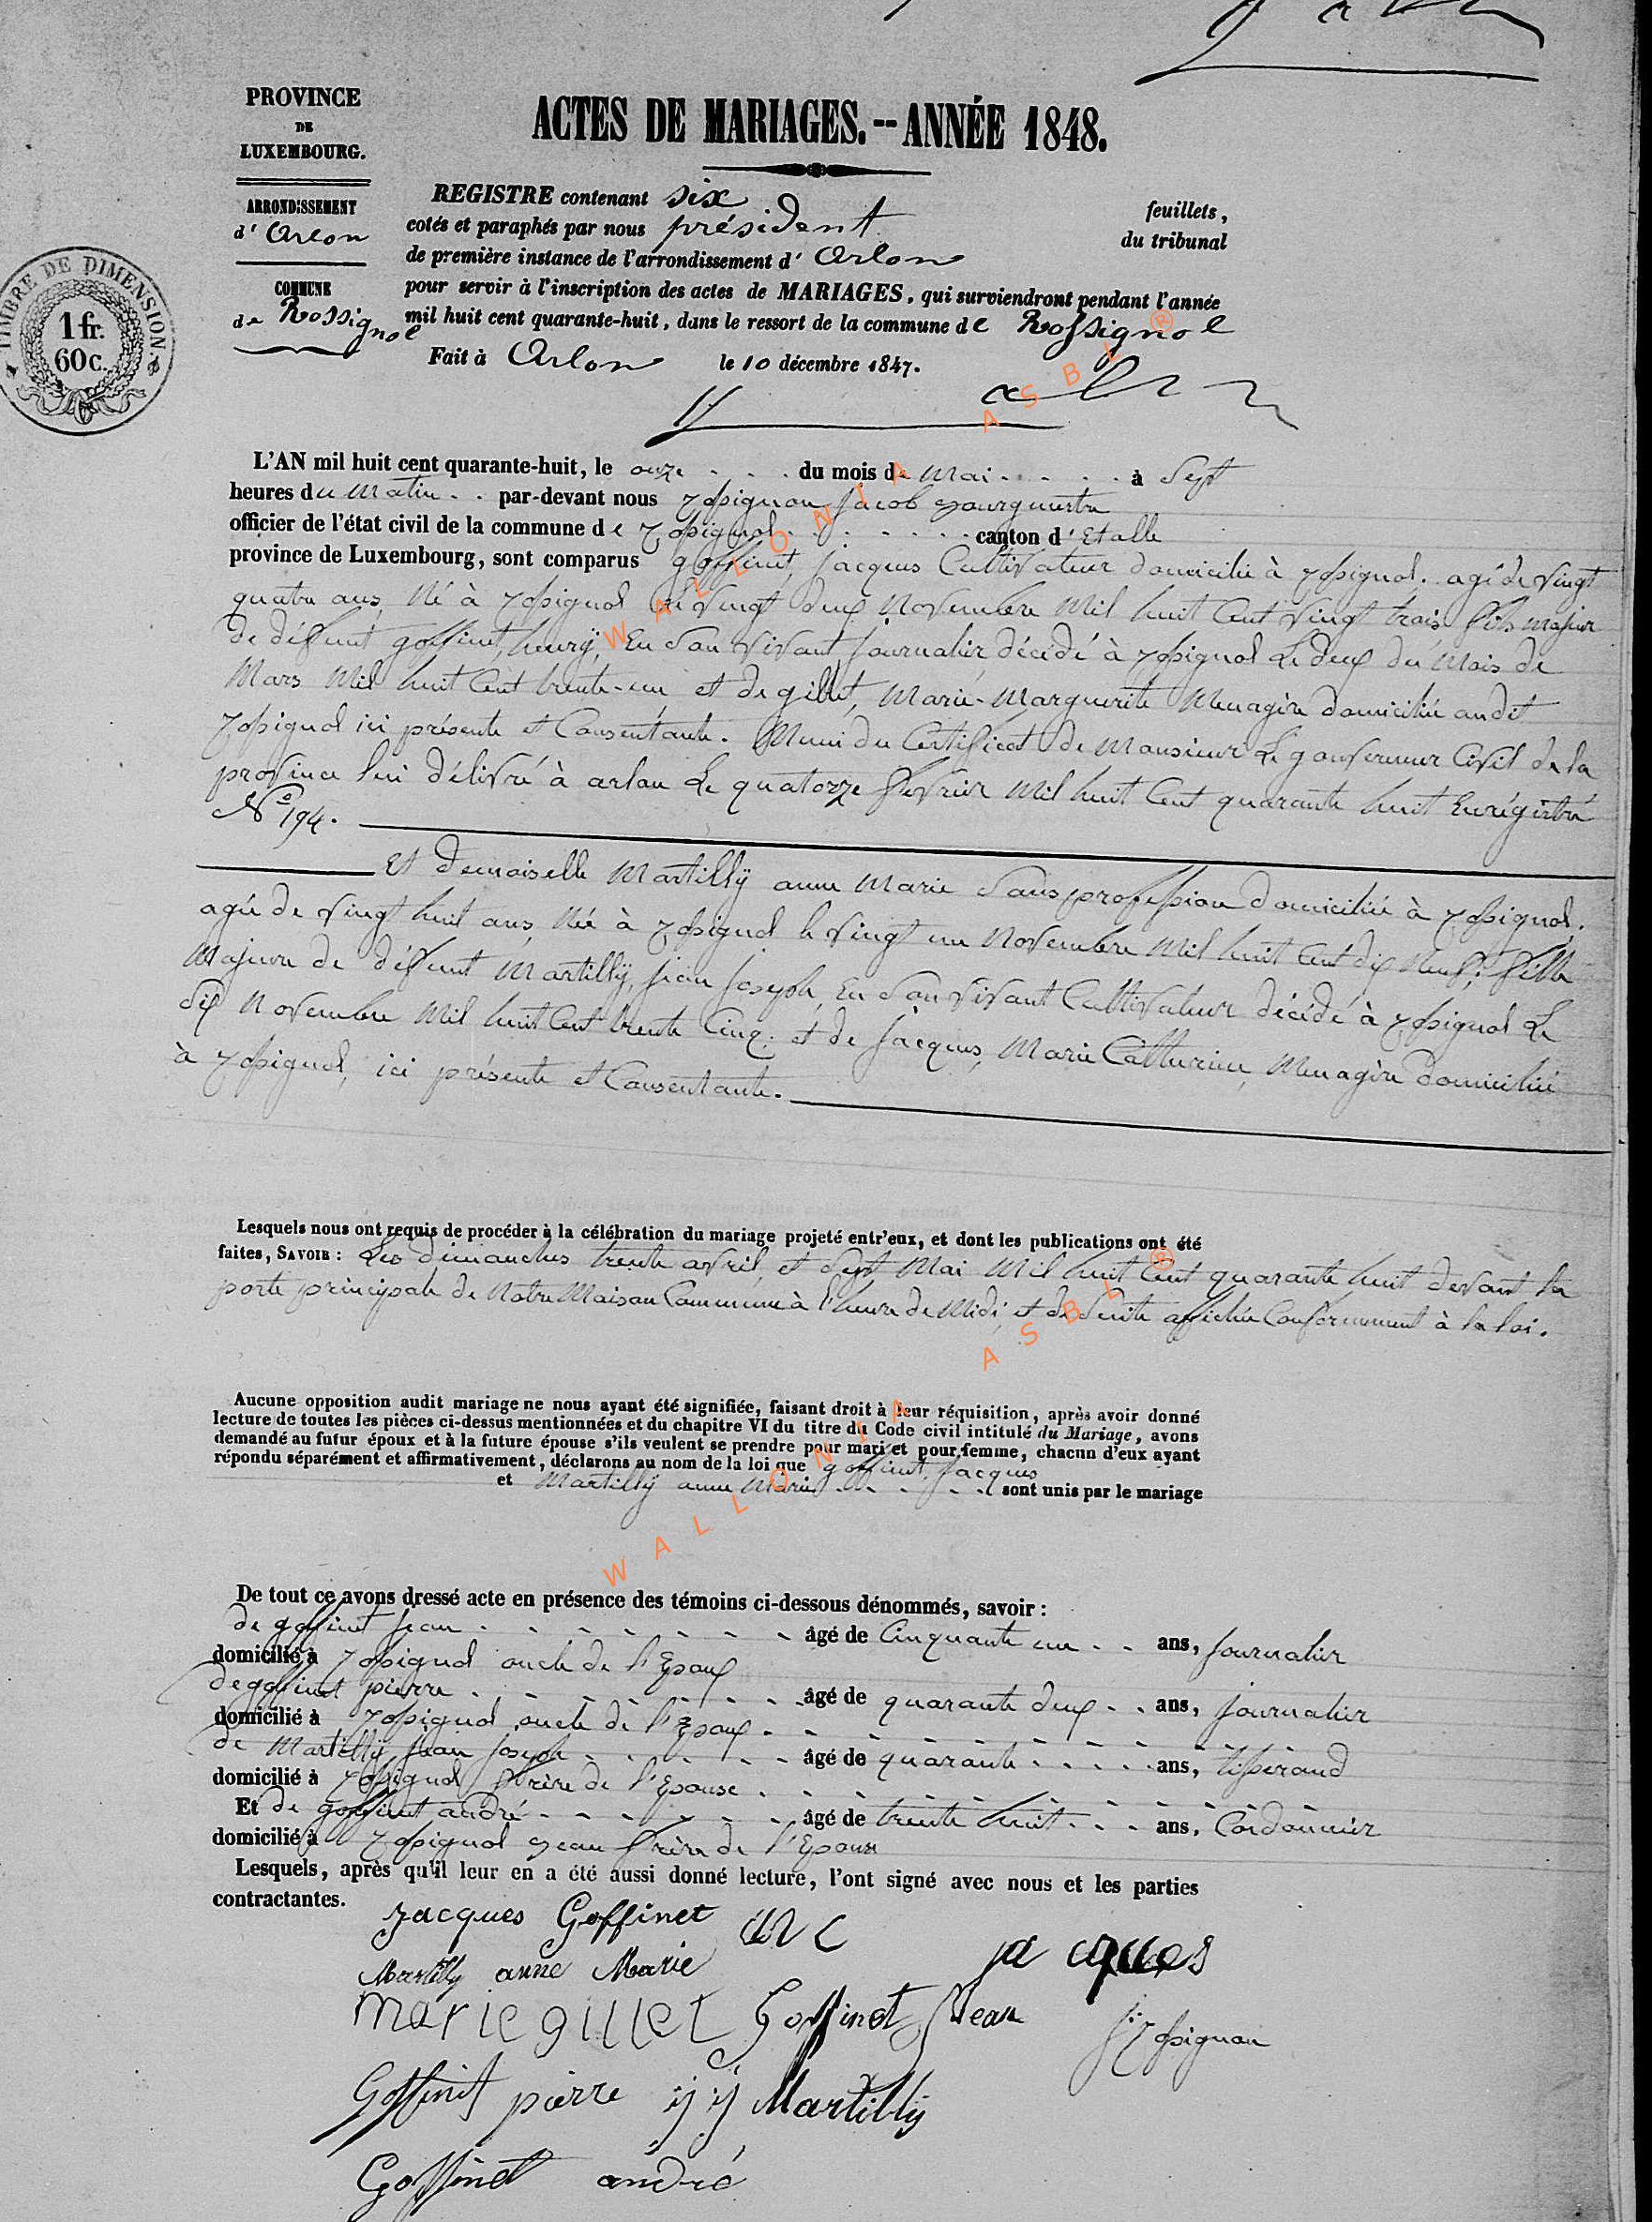 PROVINCE
DE
LUXEMBOURG.
ARRONDISSEMENT
d' Arlon
COMMUNE
de Rossignol
TIMBRE DE DIMENSION.
1 fr.
60 c.
ACTES DE MARIAGES.--ANNÉE 1848.
REGISTRE contenant six feuillets,
cotés et paraphés par nous président du tribunal
de première instance de l'arrondissement d' Arlon
pour servir à l'inscription des actes de MARIAGES, qui surviendront pendant l'année
mil huit cent quarante-huit, dans le ressort de la commune de Rossignol
Fait à Arlon le 10 décembre 1847.
L'AN mil huit cent quarante-huit, le onze du mois de Mai à Sept
heures du Matin par-devant nous Rossignon Jacob Bourgmestre
officier de l'état civil de la commune de Rossignol canton d' Etalle
province de Luxembourg, sont comparus goffinet, Jacques Cultivateur domicilié à Rossignol. agé de vingt
quatre ans, Né à Rossignol le vingt deux Novembre Mil huit Cent vingt trois, fils majeur
de défunt goffinet, henrÿ, En Son vivant Journalier, décédé à Rossignol Le deux du Mois de
Mars Mil huit Cent trente-un et de gillet, Marie-Marguerite Menagère domiciliée audit
Rossignol ici présente et Consentante. Muni du Certificat de Monsieur Le gouverneur Civil de la
province lui délivré à arlon Le quatorze fevrier Mil huit Cent quarante huit Enrégistré
No 194.
Et Demoiselle Martillÿ anne Marie Sans profession domiciliée à Rossignol.
agée de vingt huit ans, Née à Rossignol le vingt un Novembre Mil huit Cent dix Neuf; fille
Majeure de défunt Martillÿ, jean Joseph, En Son vivant Cultivateur décédé à Rossignol Le
Six Novembre Mil huit Cent trente Cinq. et de Jacques, Marie Catherine, Menagère domiciliée
à Rossignol, ici présente et Consentante.
Lesquels nous ont requis de procéder à la célébration du mariage projeté entr'eux, et dont les publications ont été
faites, SAVOIR : Les dimanches trente avril, et Sept Mai Mil huit Cent quarante huit devant la
porte principale de Notre Maison Commune à l'heure de Midi, et de Suite affichée Conformement à la loi.
Aucune opposition audit mariage ne nous ayant été signifiée, faisant droit à leur réquisition, après avoir donné
lecture de toutes les pièces ci-dessus mentionnées et du chapitre VI du titre du Code civil intitulé du Mariage, avons
demandé au futur époux et à la future épouse s'ils veulent se prendre pour mari et pour femme, chacun d'eux ayant
répondu séparément et affirmativement, déclarons au nom de la loi que goffinet, Jacques
et Martillÿ anne Marie sont unis par le mariage
De tout ce avons dressé acte en présence des témoins ci-dessous dénommés, savoir :
de goffinet Jean âgé de Cinquante un ans, Journalier
domicilié à Rossignol oncle de l'Epoux
de goffinet pierre âgé de quarante deux ans, Journalier
domicilié à Rossignol oncle de l'Epoux
de Martillÿ Jean Joseph âgé de quarante ans, tisserand
domicilié à Rossignol frère de l'Epouse
Et de goffinet andré âgé de trente huit ans, Cordonnier
domicilié à Rossignol Beau frère de l'Epouse
Lesquels, après qu'il leur en a été aussi donné lecture, l'ont signé avec nous et les parties
contractantes.
Jacques Goffinet
Martilly anne Marie
ja ques
Marie gillet Goffinet Jean
J. Rossignon
Goffinet pierre j j Martilly
Goffinet andré
WALLONIA ASBL ®
WALLONIA ASBL ®